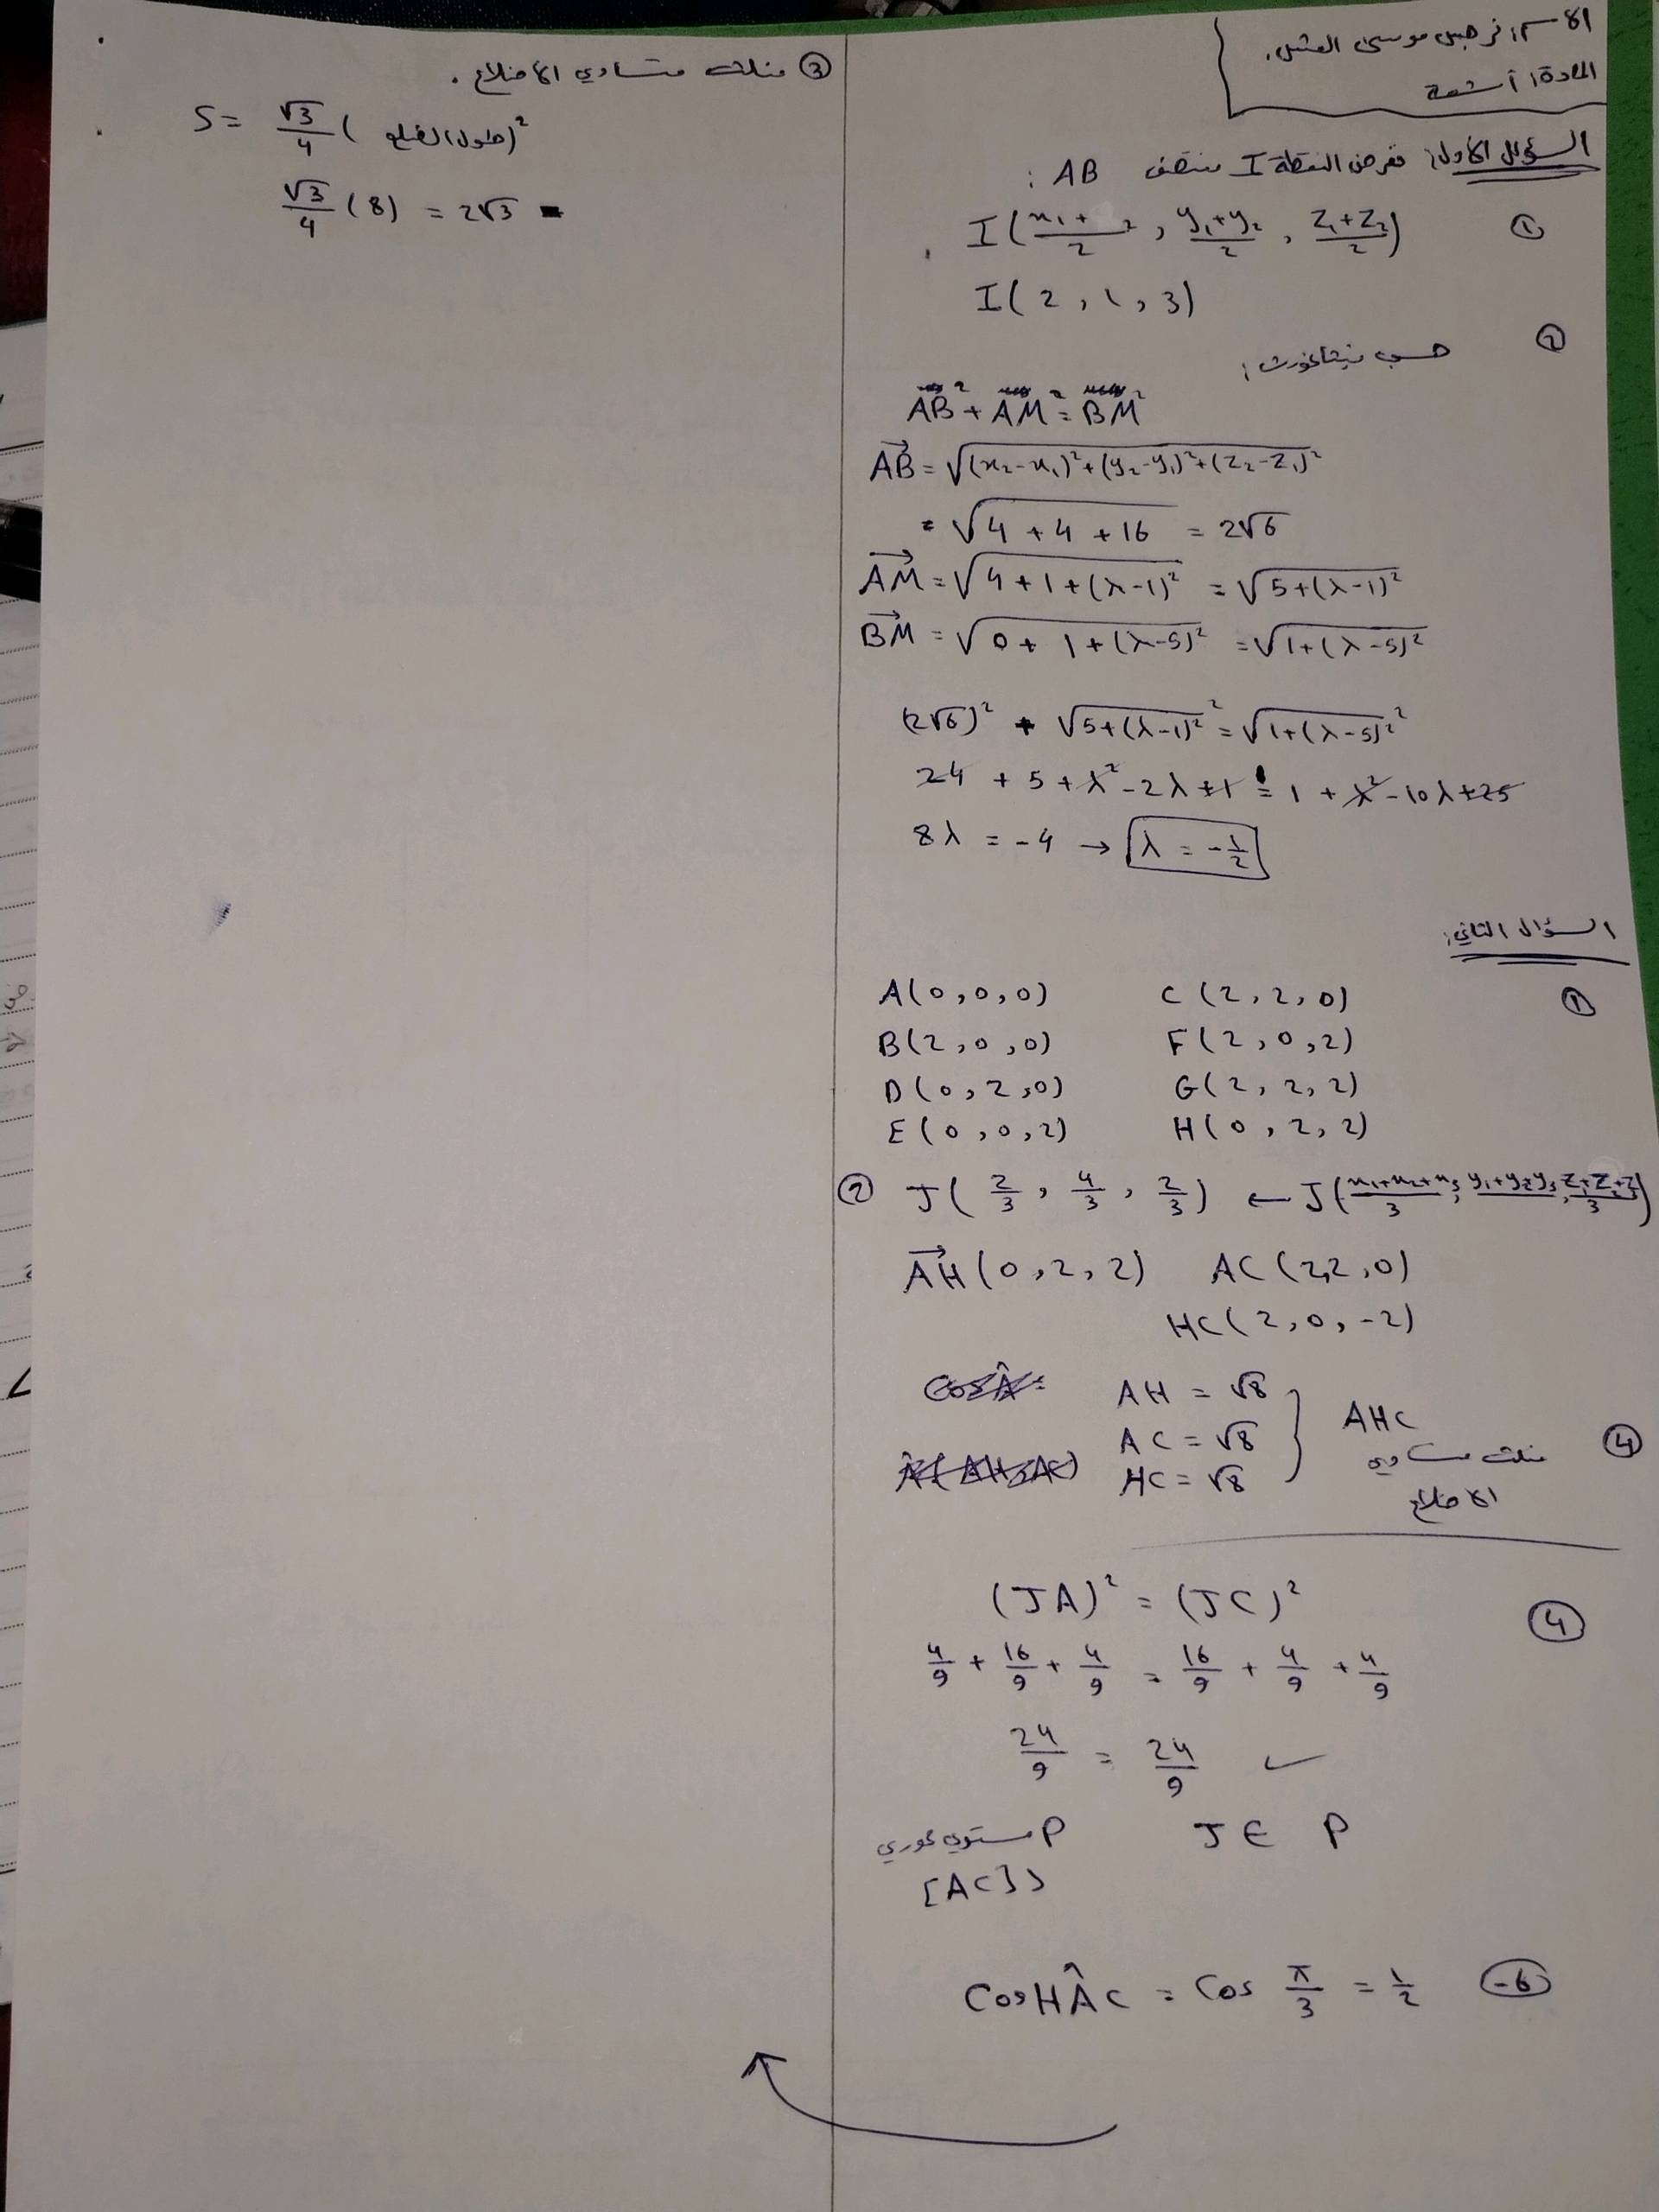 الاسم: نرجس موسى العشي.
المادة: أشعة
السؤال الأول: نفرض النقطة I منتصف AB :
① I( x₁+ ₂/2 , y₁+y₂/2 , z₁+z₂/2 )
I(2 , 1 , 3)
② حسب فيثاغورث :
AB² + AM² = BM²
AB = √(x₂-x₁)²+(y₂-y₁)²+(z₂-z₁)²
= √4 + 4 + 16 = 2√6
AM = √4+1+(λ-1)² = √5+(λ-1)²
BM = √0+ 1+(λ-5)² = √1+(λ-5)²
(2√6)² + √5+(λ-1)²² = √1+(λ-5)²²
24 + 5 + λ² - 2λ + 1 = 1 + λ² - 10λ + 25
8λ = -4 → λ = -1/2
السؤال الثاني:
① A(0,0,0) C(2,2,0)
B(2,0,0) F(2,0,2)
D(0,2,0) G(2,2,2)
E(0,0,2) H(0,2,2)
② J( 2/3 , 4/3 , 2/3 ) ← J( x₁+x₂+x₃/3 , y₁+y₂+y₃/3 , z₁+z₂+z₃/3 )
AH(0,2,2) AC(2,2,0)
HC(2,0,-2)
AH = √8
AC = √8
HC = √8
AHC
مثلث متساوي
الاضلاع
④
④ (JA)² = (JC)²
4/9 + 16/9 + 4/9 = 16/9 + 4/9 + 4/9
24/9 = 24/9 ✓
J ∈ P
P مستوي محوري
[AC]
-6 Cos HÂC = Cos π/3 = 1/2
③ مثلث متساوي الاضلاع .
S = √3/4 (طول الضلع)²
√3/4 (8) = 2√3